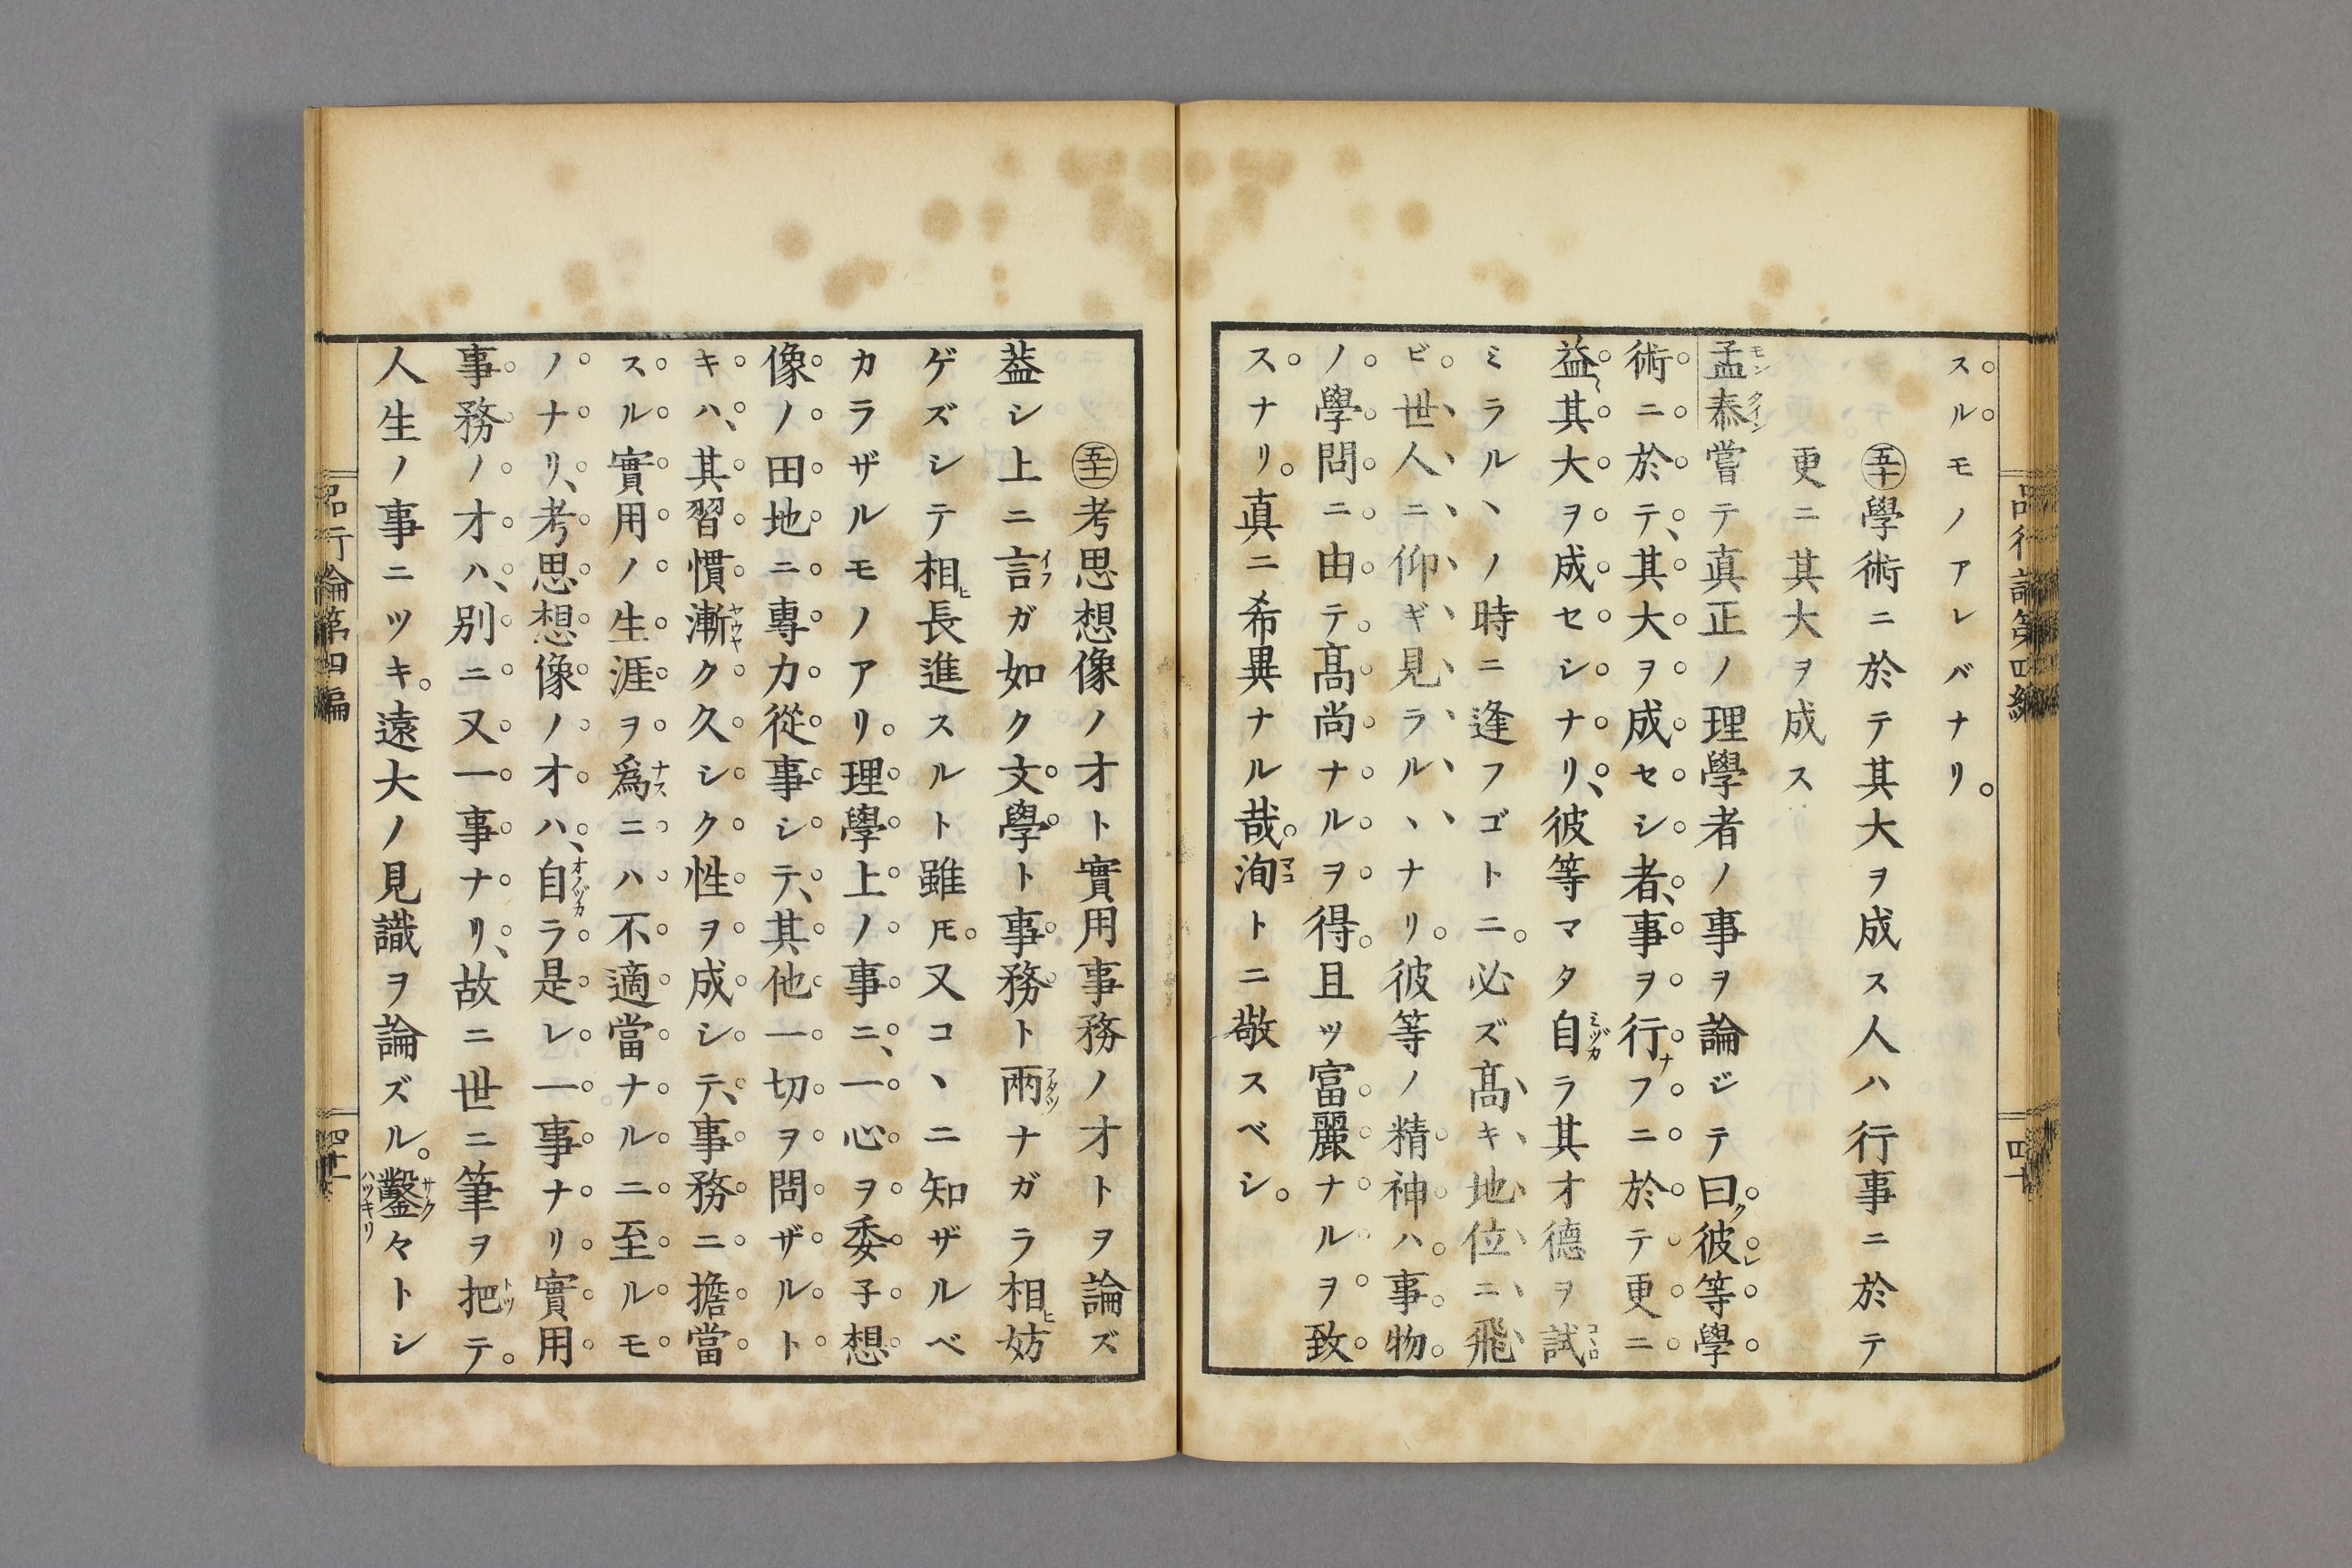 品行論第四編
四十
スルモノアレバナリ。
㊿學術ニ於テ其大ヲ成ス人ハ行事ニ於テ
更ニ其大ヲ成ス
孟泰嘗テ真正ノ理學者ノ事ヲ論ジテ曰ク彼レ等學
術ニ於テ、其大ヲ成セシ者、事ヲ行ナフニ於テ更ニ
益〻其大ヲ成セシナリ、彼等マタ自ラ其才德ヲ試
ミラルヽノ時ニ逢フゴトニ。必ズ髙キ地位ニ飛
ビ世人ニ仰ギ見ラルヽナリ。彼等ノ精神ハ事物
ノ學問ニ由テ髙尚ナルヲ得且ツ富麗ナルヲ致
スナリ。真ニ希異ナル哉。洵トニ敬スベシ。
五十一考思想像ノ才ト實用事務ノ才トヲ論ズ
葢シ上ニ言ガ如ク文學ト事務ト兩ナガラ相妨
ゲズシテ相長進スルト雖𪜈。又コヽニ知ザルベ
カラザルモノアリ。理學上ノ事ニ、一心ヲ委子想
像ノ田地ニ專力從事シテ、其他一切ヲ問ザルト
キハ、其習慣漸ク久シク性ヲ成シテ、事務ニ擔當
スル實用ノ生涯ヲ爲ニハ不適當ナルニ至ルモ
ノナリ、考思想像ノ才ハ、自ラ是レ一事ナリ實用
事務ノ才ハ、別ニ又一事ナリ、故ニ世ニ筆ヲ把テ。
人生ノ事ニツキ。遠大ノ見識ヲ論ズル。鑿々トシ
品行論第四編
四十一